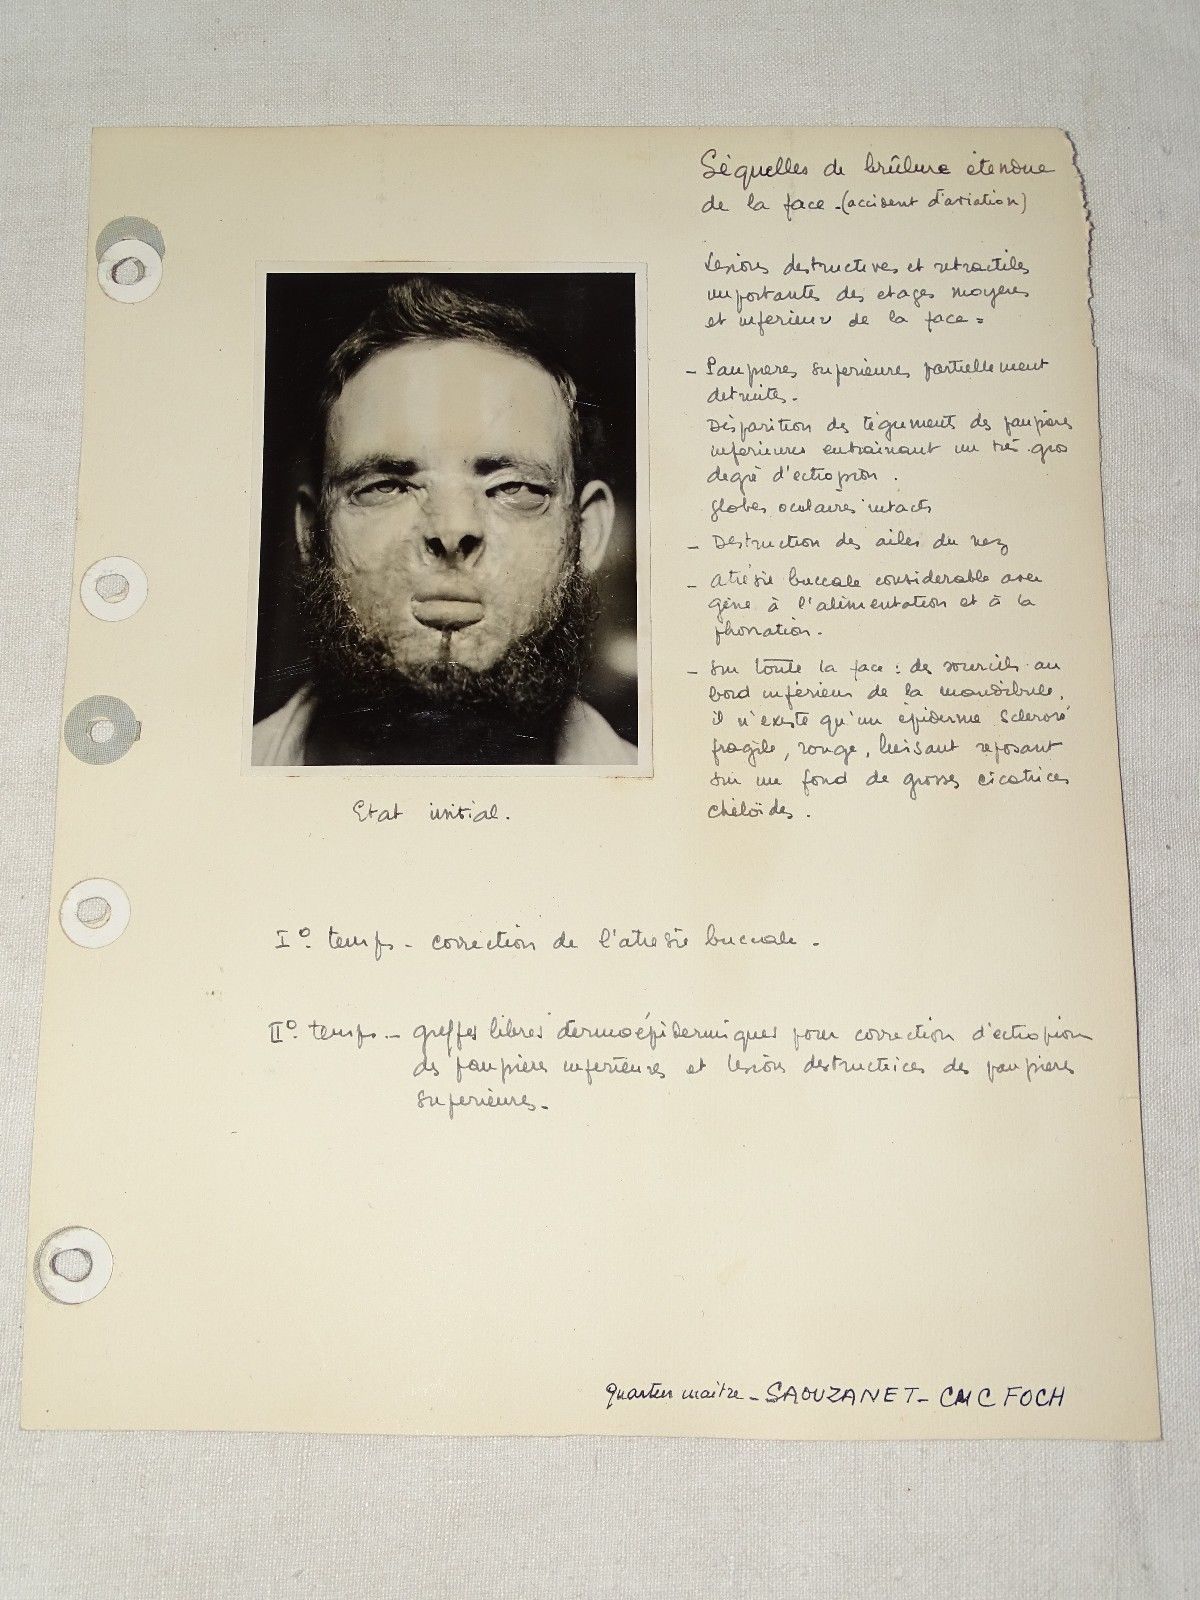 Séquelles de brûlure étendue
de la face - (accident d'aviation)
Lesions destructives et retractiles
importantes des etages moyens
et inferieur de la face =
- Paupieres superieures partiellement
detruites -
Disparition des téguments des paupieres
inferieures entrainant un très gros
degré d'ectropion .
globes oculaires intacts
- Destruction des ailes du nez
- atrésie buccale considerable avec
gêne à l'alimentation et à la
phonation -
- sur toute la face : des sourcils au
bord inférieur de la mandibule,
il n'existe qu'un épiderme sclerosé
fragile, rouge, luisant reposant
sur un fond de grosses cicatrices
chéloïdes .
Etat initial .
I° temps - correction de l'atresie buccale -
II° temps - greffes libres dermoépidermiques pour correction d'ectropion
des paupières inferieures et lesions destructrices des paupieres
superieures -
quartier maitre - SAOUZANET - CMC FOCH